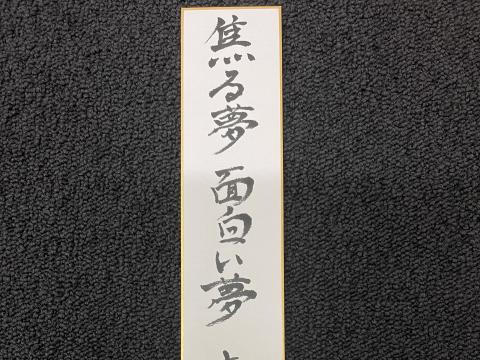 焦る夢 面白い夢